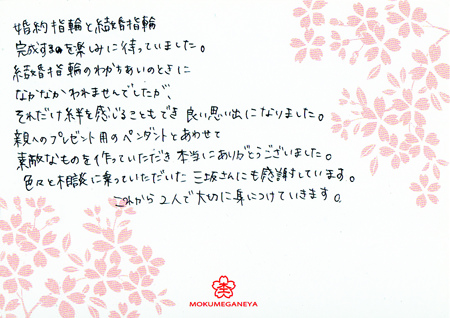 婚約指輪と結婚指輪
完成するのを楽しみに待っていました。
結婚指輪のわかちあいのときに
なかなかわれませんでしたが、
それだけ絆を感じることもでき 良い思い出になりました。
親へのプレゼント用のペンダントとあわせて
素敵なものを作っていただき本当にありがとうございました。
色々と相談に乗っていただいた 三坂さんにも感謝しています。
これから2人で大切に身につけていきます。
MOKUMEGANEYA